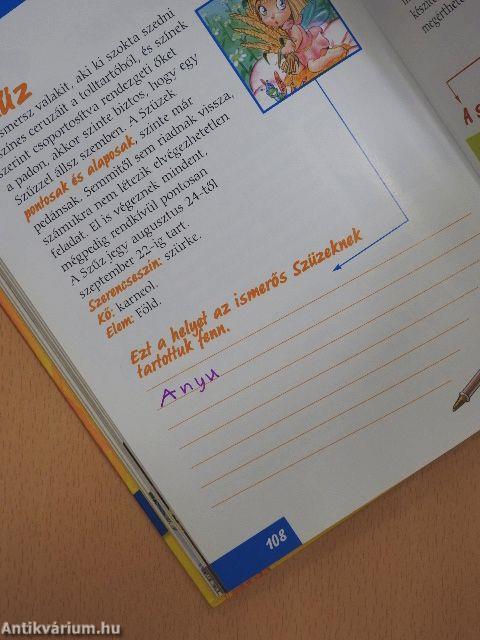 űz
smersz valakit, aki ki szokta szedni
színes ceruzáit a tolltartóból, és színek
szerint csoportosítva rendezgeti őket
a padon, akkor szinte biztos, hogy egy
Szűzzel állsz szemben. A Szüzek
pontosak és alaposak, szinte már
pedánsak. Semmitől sem riadnak vissza,
számukra nem létezik elvégezhetetlen
feladat. El is végeznek mindent,
mégpedig rendkívül pontosan
A Szűz jegy augusztus 24-től
szeptember 22-ig tart.
Szerencseszín: szürke.
Kő: karneol.
Elem: Föld.
Ezt a helyet az ismerős Szüzeknek
tartottuk fenn.
Anyu
108
készíte
megérthete
A s
Antikvárium.hu